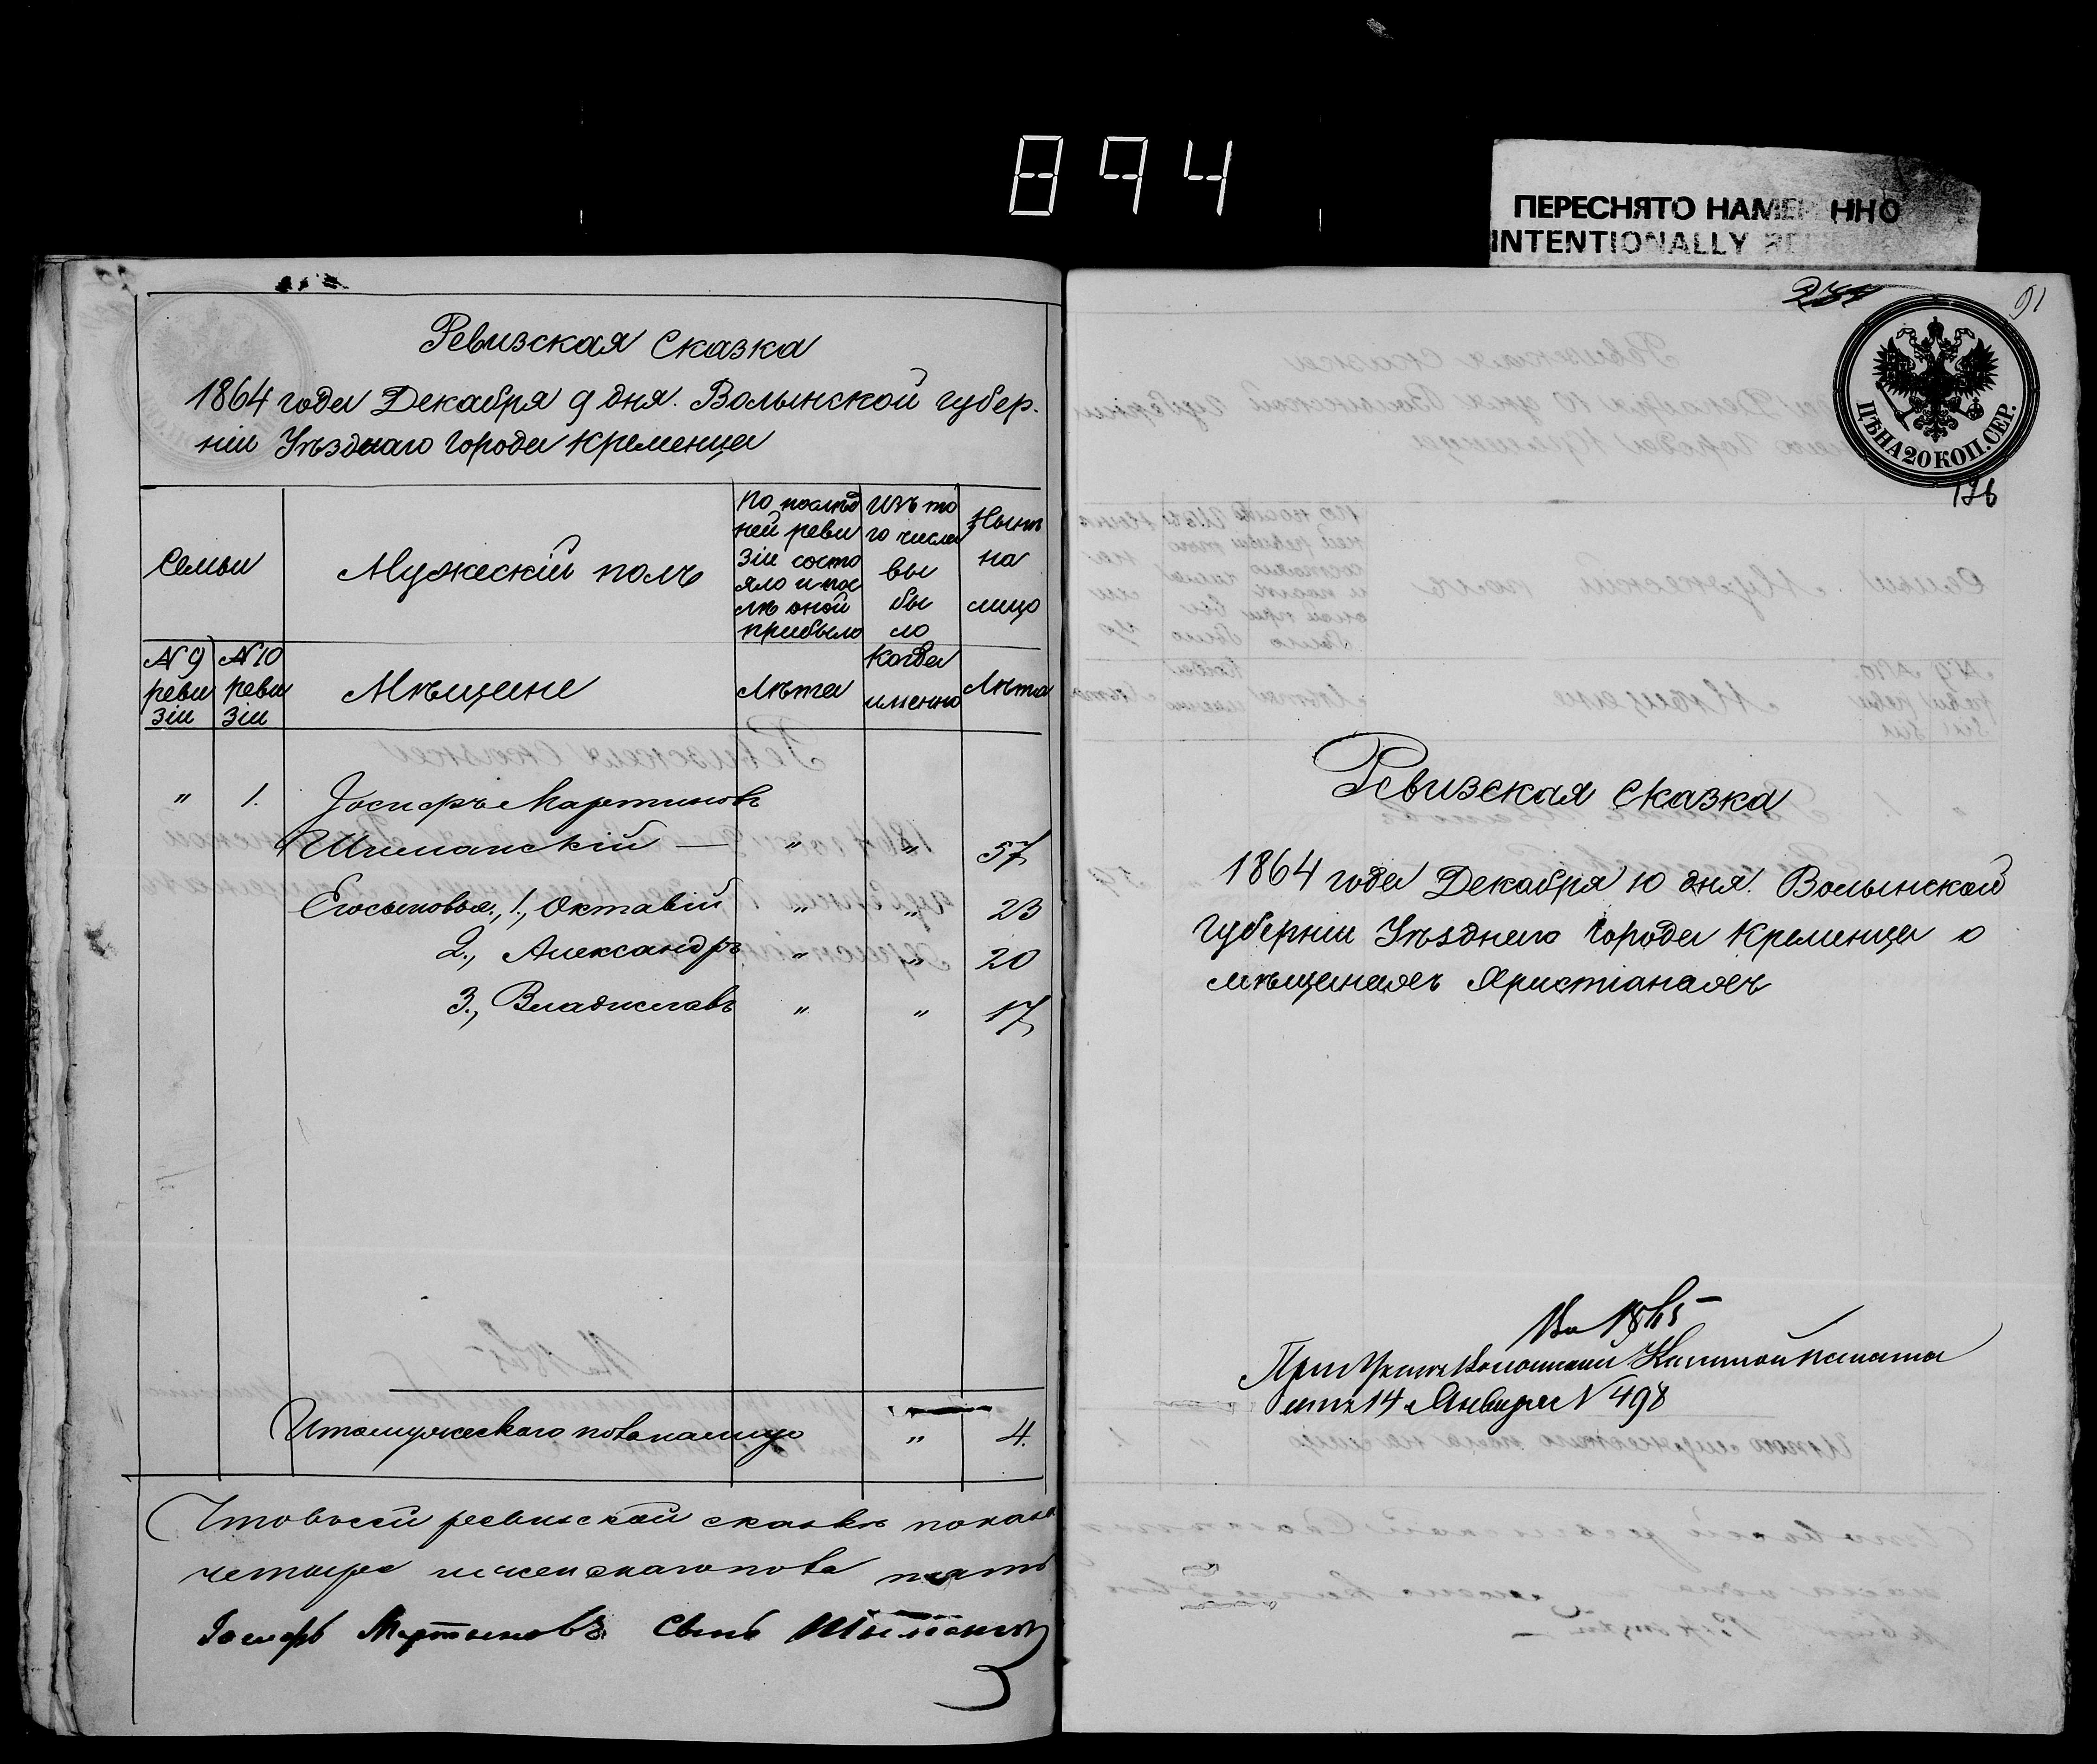 894
ПЕРЕСНЯТО НАМЕР ННО
INTENTIONALLY
Ревизская Сказка
1864 года Декабря 9 дня. Волынской губер-
нiи Уѣзднаго города Кременца
Семьи
Мужескiй полъ
По послѣд
ней реви
зiи состо
яло и пос
лѣ оной
прибыло
Изъ то
го числа
вы
бы
ло
Нынѣ
на
лицо
№ 9
реви
зiи
№ 10
реви
зiи
Мѣщане
Лѣта
Когда
именно
Лѣта
" 1. Iосифъ Мартиновъ
Шиманскiй — " " 57
Его сыновья., 1., Октавiй " " 23
2., Александръ " " 20
3., Владиславъ " " 17
Итого мужескаго пола на лицо " 4.
Что въ сей ревизской сказкѣ показа
четыре и женскаго пола пять
Iосифъ Мартыновъ Сынъ Шыманскiй
3
91
ЦѢНА 20 КОП. СЕР.
176
Ревизская Сказка
1864 года Декабря 10 дня. Волынской
Губернiи Уѣзднаго города Кременца о
мѣщанахъ Христiанахъ
На 1865
При Указѣ Волынской Казенной палаты
отъ 14 Января № 498